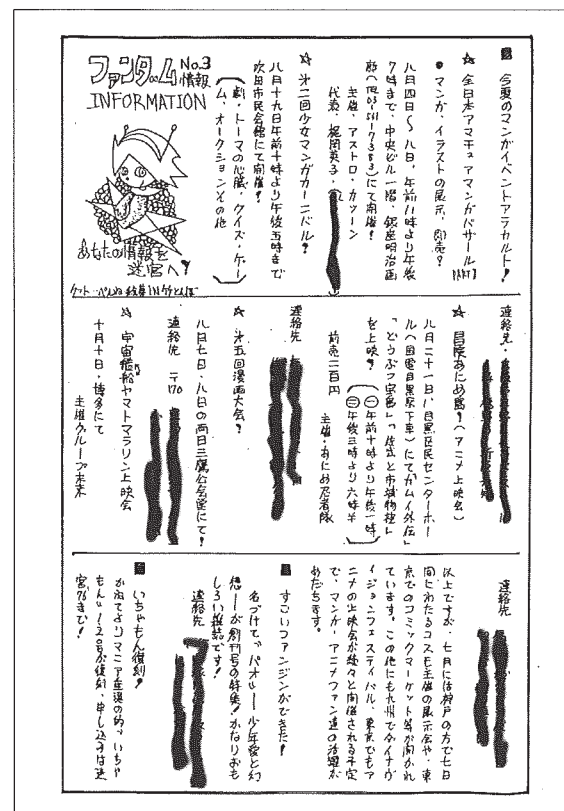 ファンダム
No.3
情報
INFORMATION
あなたの情報を
迷宮へ!
■ 今夏のマンガイベントアラカルト!
☆ 全日本アマチュアマンガバザール PART1
●マンガ、イラストの展示、即売?
八月四日〜八日、午前11時より午後
7時まで、中央ビル一階、銀座明治画
廊(TEL03-561-7383)にて開催?
主催、アストロ・カツーン
代表、梶岡英子(
☆ 第二回少女マンガカーニバル?
八月十九日午前十時より午後五時まで
吹田市民会館にて開催?
(劇・トーマの心臓、クイズ・ゲー
ム、オークションその他
連絡先・
☆ 冒険あにめ島?(アニメ上映会)
八月二十一日
目黒区民センターホー
ル(国電目黒駅下車)にてカムイ外伝
「どうぶつ宝島」
を上映?
(一)午前十時より午後一時
(二)午後三時より六時半
前売二百円
主催・あにめ忍者隊
連絡先
☆ 第五回漫画大会?
八月七日、八日の両日三鷹公会堂にて!
連絡先 〒170
☆ 宇宙戦艦ヤマトマラソン上映会
十月十日・博多にて
主催グループ未来
連絡先
以上ですが、七月には神戸の方で七日
間にわたるコスモ主催の展示会や、東
京でのコミックマーケット等が開かれ
ています。この他にも九州でダイナヴ
ィジョンフェスティバル、東京でもア
ニメの上映会が続々と開催される予定
で、マンガ・アニメファン達の活躍が
めだちます。
■ すごいファンジンができた!
名づけて、パオレ!少年愛と幻
想―が創刊号の特集!かなりおも
しろい雑誌です!
連絡先
■ いちゃもん復刻!
かねてよりマニア垂涎の的、いちゃ
もん
号が復刻、申し込みは迷
宮76まで!